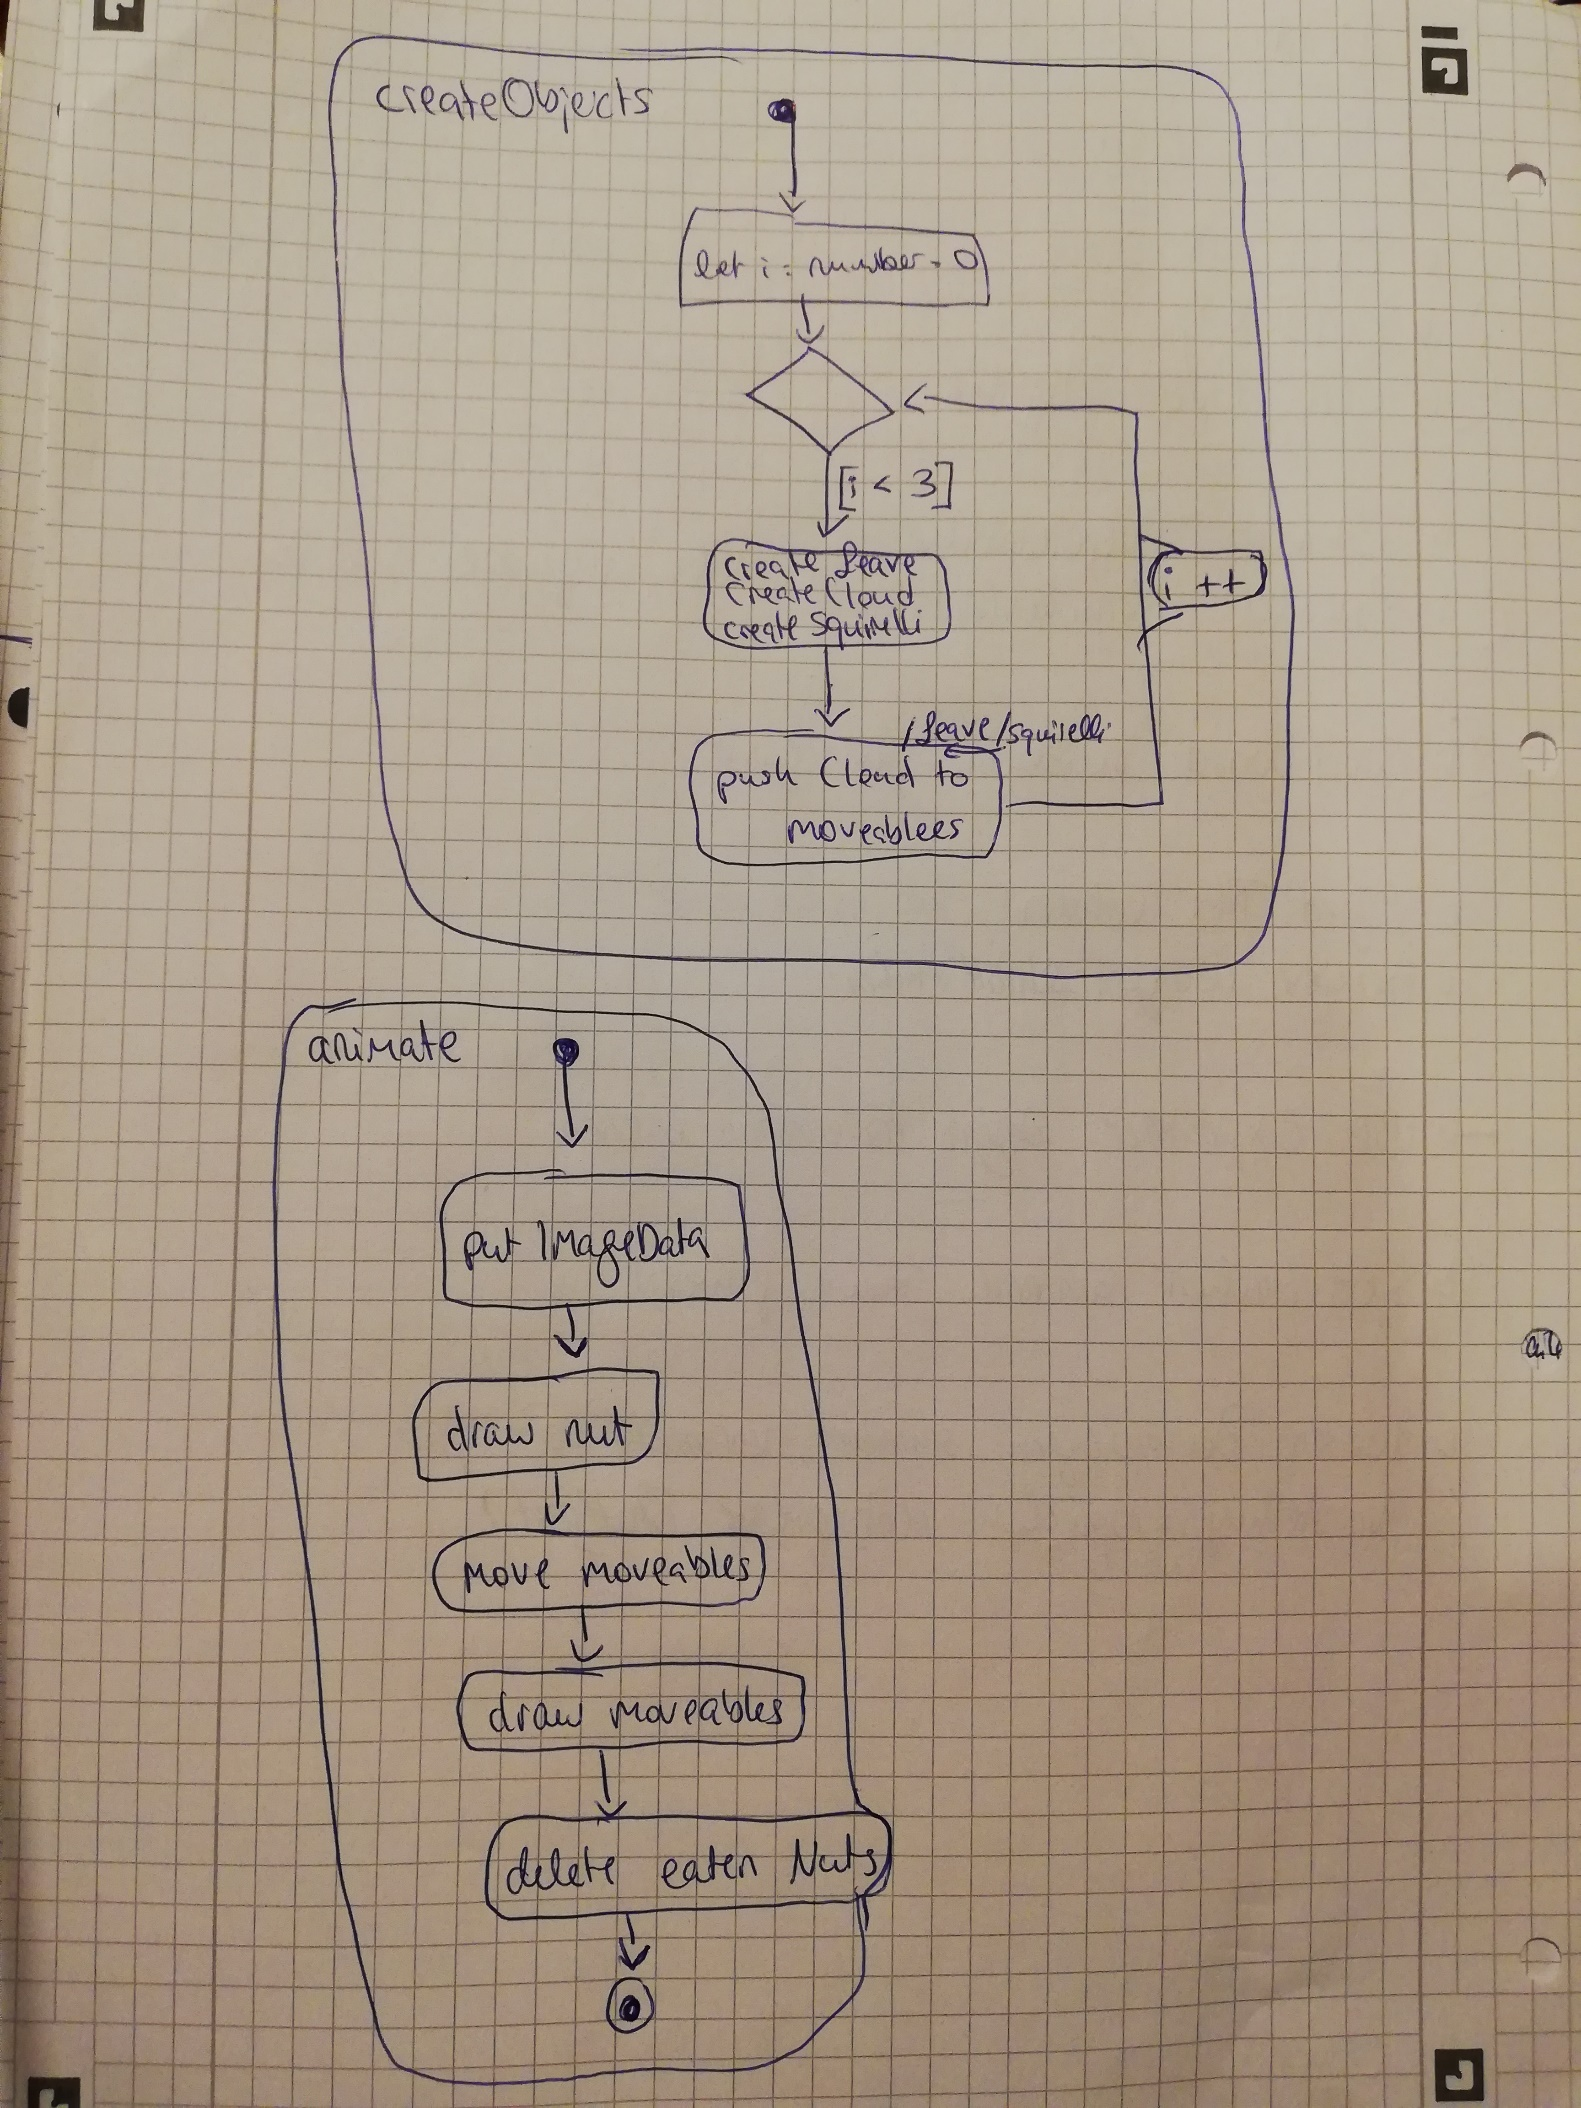 createObjects
let i : number = 0
[i < 3]
create Leave
create Cloud
create Squirelli
i ++
/Leave/Squirelli
push Cloud to
moveablees
animate
put ImageData
draw nut
move moveables
draw moveables
delete eaten Nuts